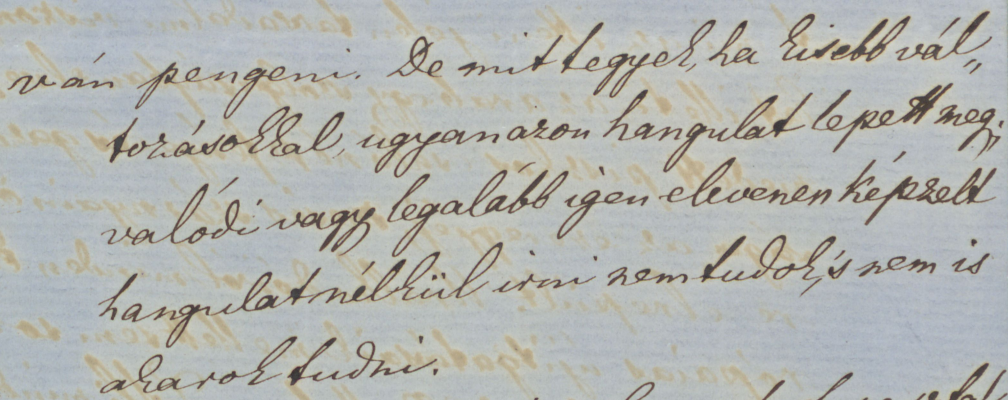 ván pengeni. De mit tegyek, ha kisebb vál„
tozásokkal, ugyanazon hangulat lepett meg;
valódi vagy legalább igen elevenen képzelt
hangulat nélkül irni nem tudok, 's nem is
akarok tudni.